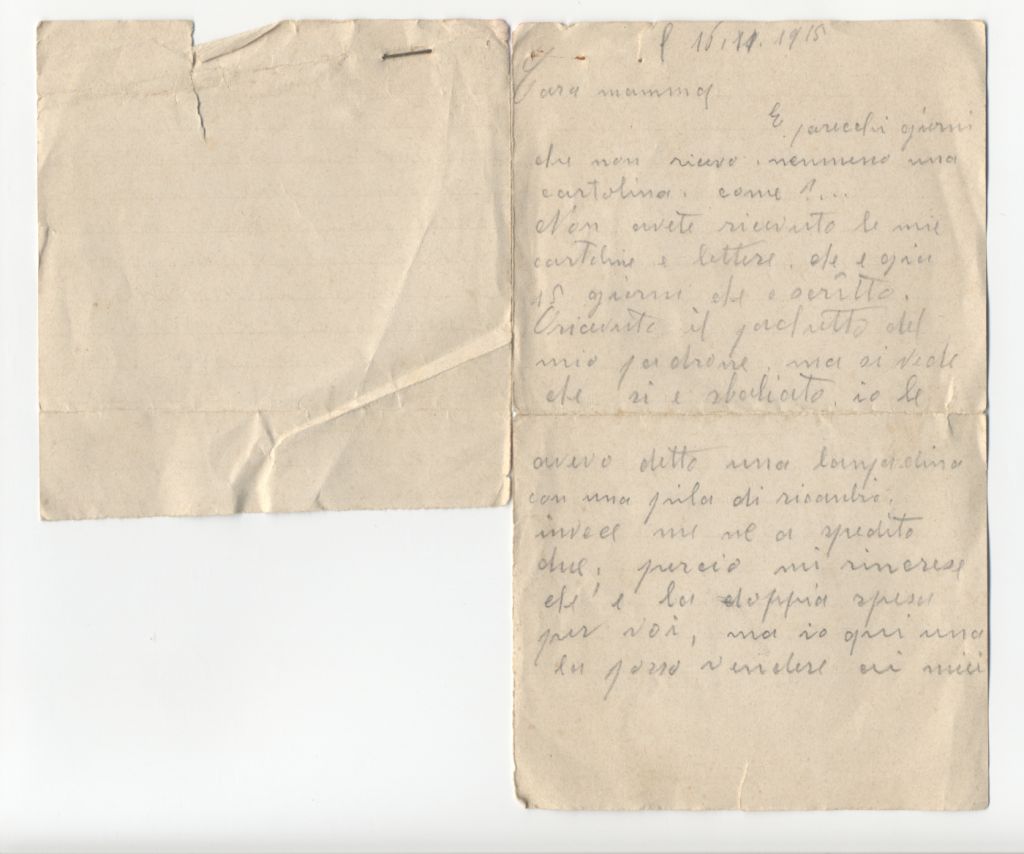 li 16.11.1915
Cara mamma
E parecchi giorni
che non ricevo nemmeno una
cartolina. come ?...
Non avete ricevuto le mie
cartoline e lettere. che e gia
15 giorni che o scritto.
O ricevuto il pachetto del
mio padrone, ma si vede
che si e sbaliato. io le
avevo detto una lampadina
con una pila di ricambio.
invece me ne a spedito
due, perciò mi rincrese
che' e la doppia spesa
per voi, ma io qui una
la posso vendere ai miei